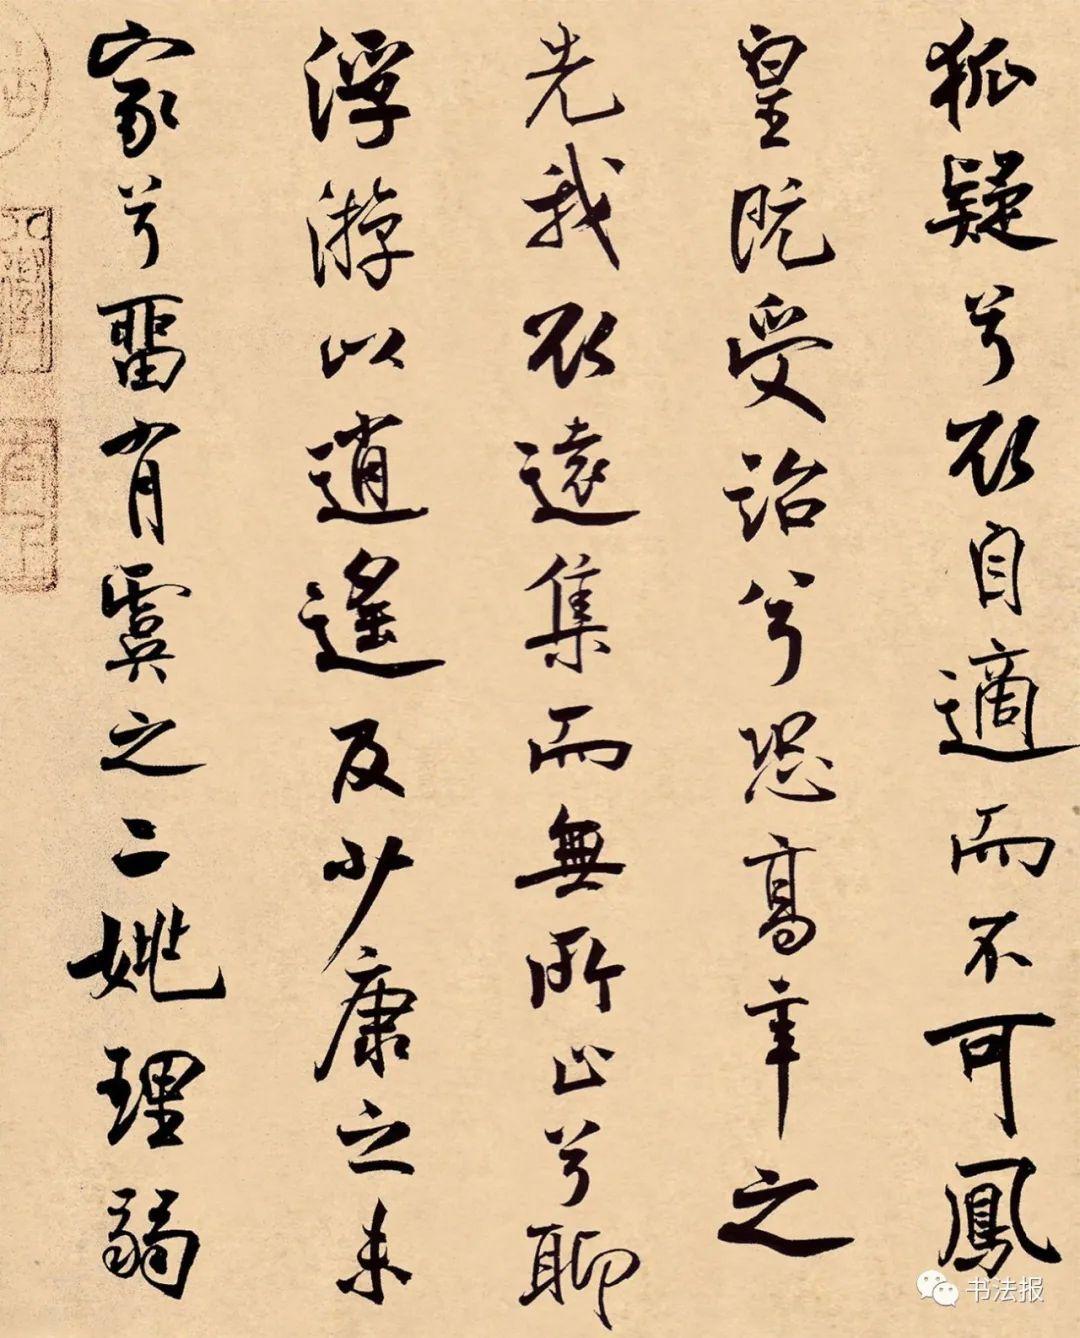 狐疑兮欲自適而不可鳳
皇既受詒兮恐高辛之
先我欲遠集而無所止兮聊
浮游以逍遙及少康之未
家兮畱有虞之二姚理弱
书法报